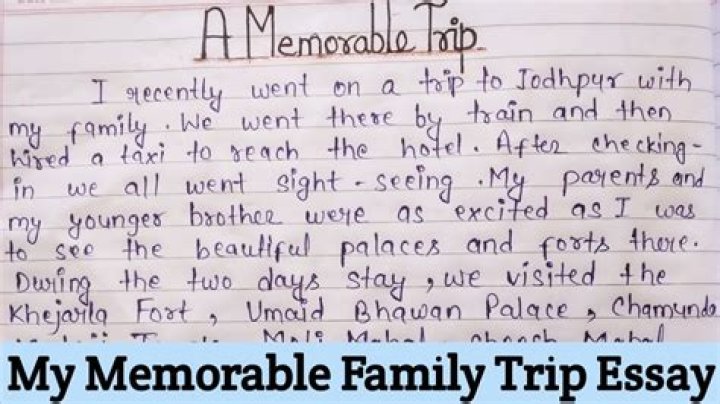 A Memorable Trip
I recently went on a trip to Jodhpur with
my family. We went there by train and then
hired a taxi to reach the hotel. After checking-
in we all went sight-seeing. My parents and
my younger brother were as excited as I was
to see the beautiful palaces and forts there.
During the two days stay, we visited the
Khejarla Fort, Umaid Bhawan Palace, Chamunda
Mahal Mahal
My Memorable Family Trip Essay